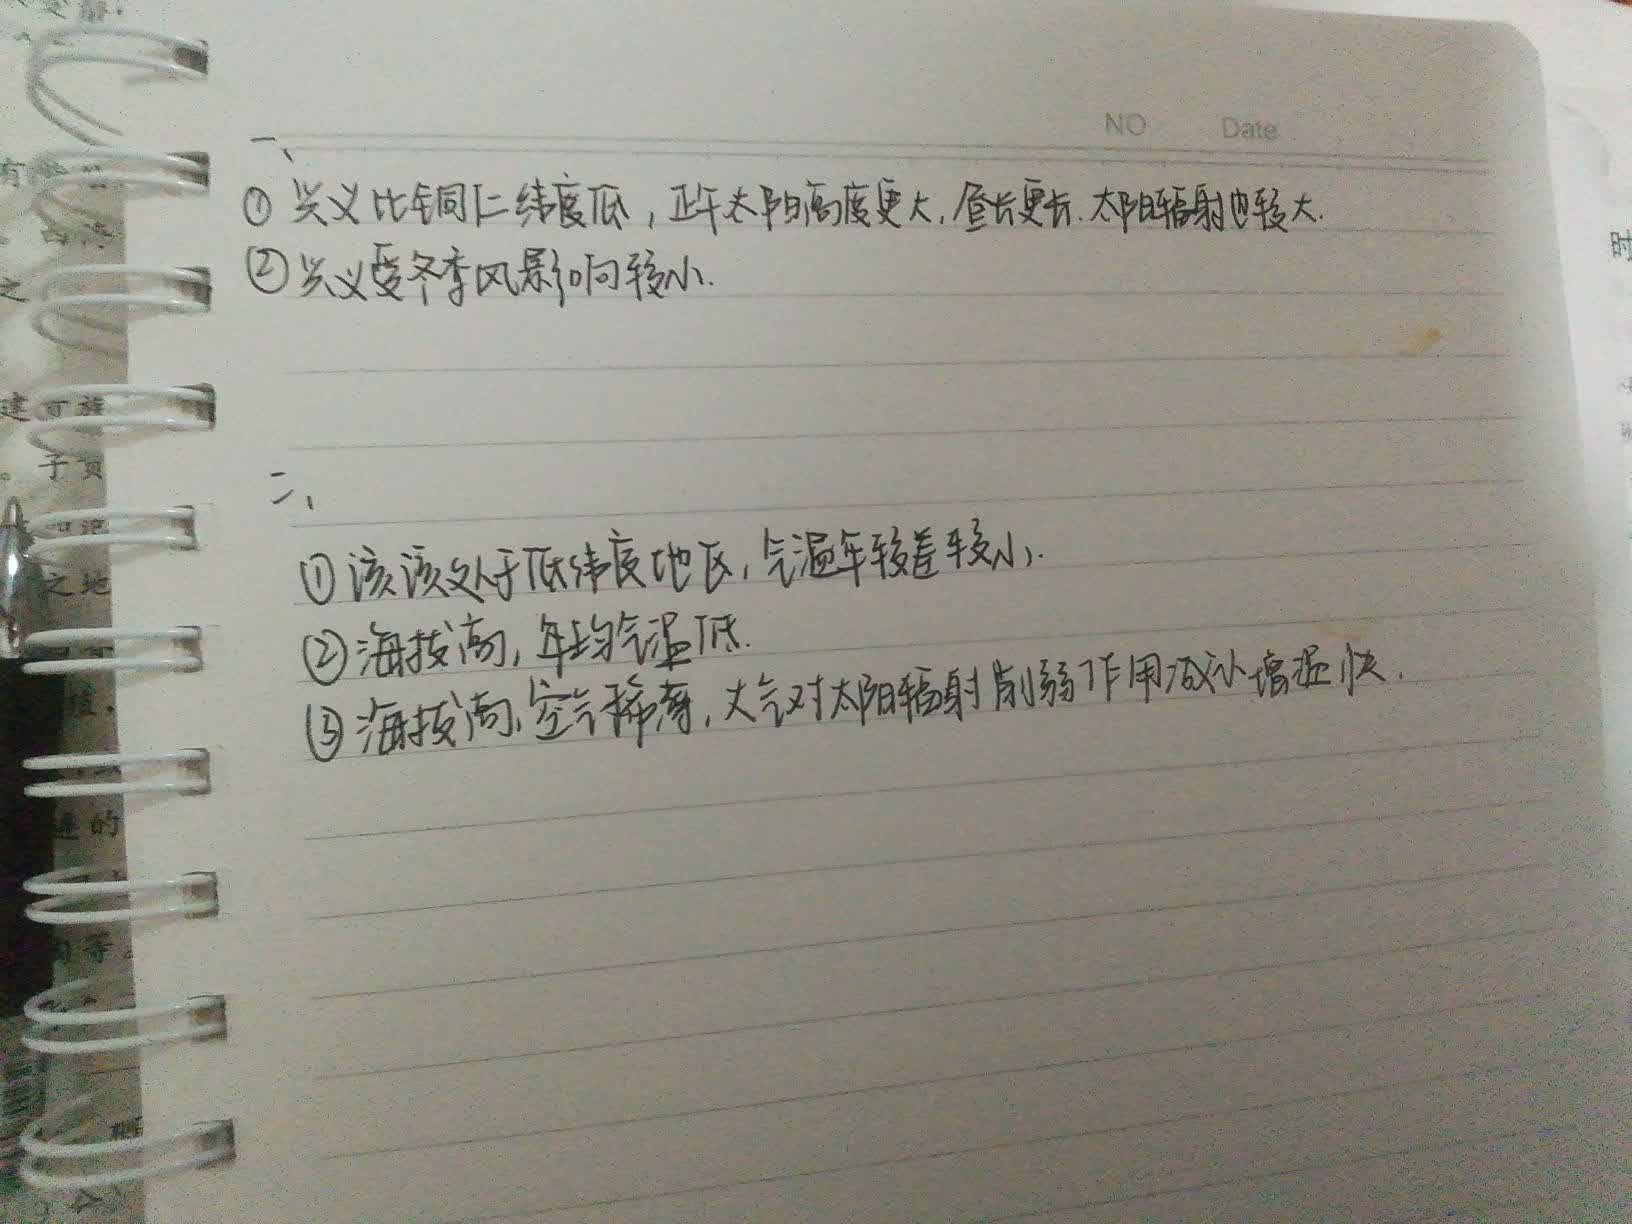 NO Date
一、
① 兴义比铜仁纬度低，正午太阳高度更大，昼长更长.太阳辐射也较大.
② 兴义受冬季风影响较小.
二、
① 该该处于低纬度地区，气温年较差较小.
② 海拔高，年均气温低.
③ 海拔高，空气稀薄，大气对太阳辐射削弱作用减小增温快.
时
建
子贡
之地
连的